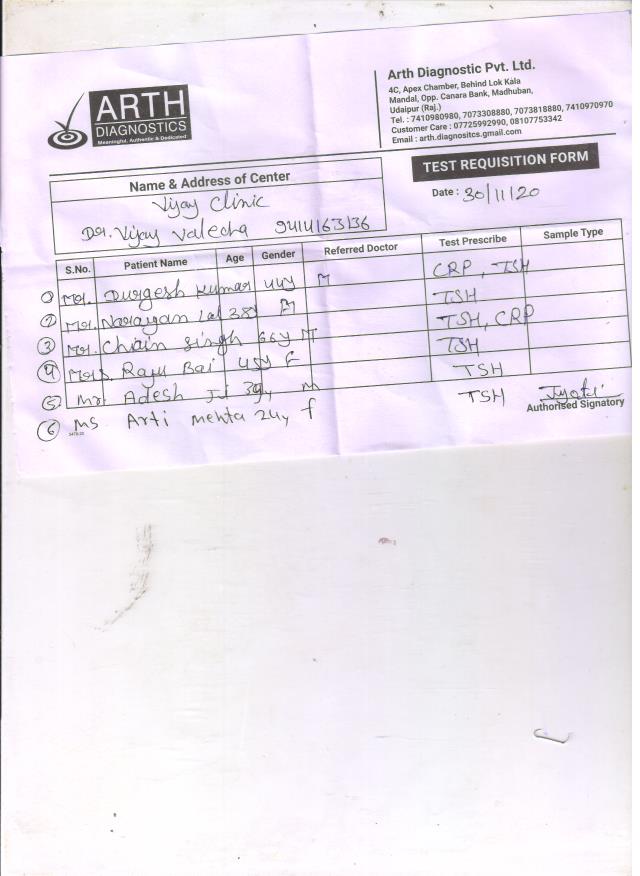 ARTH
DIAGNOSTICS
Meaningful, Authentic & Dedicated
Arth Diagnostic Pvt. Ltd.
4C, Apex Chamber, Behind Lok Kala
Mandal, Opp. Canara Bank, Madhuban,
Udaipur (Raj.)
Tel. : 7410980980, 7073308880, 7073818880, 7410970970
Customer Care : 07725992990, 08107753342
Email : arth.diagnositcs.gmail.com
TEST REQUISITION FORM
Name & Address of Center
Vijay Clinic
Dr. Vijay Valecha 9414163136
Date : 30/11/20
S.No. Patient Name Age Gender Referred Doctor Test Prescribe Sample Type
1 Mr. Durgesh Kumar 44y M CRP, TSH
2 Mr. Narayan Lal 38y M TSH
3 Mr. Chain Singh 66y M TSH, CRP
4 Mrs. Raju Bai 45y F TSH
5 Mr. Adesh 39y M TSH
6 Ms Arti Mehta 24y f TSH
Jyoti
Authorised Signatory